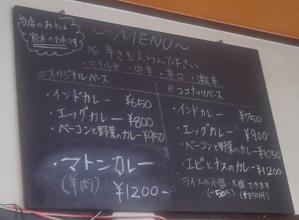 当店のお米は
熊本のお米です
～MENU～
※辛さをえらんで下さい
・マイルド・中辛・辛口・激辛
○オリジナルベース
・インドカレー ¥650
・エッグカレー ¥800
・ベーコンと野菜のカレー ¥950
・マトンカレー
(羊肉) ¥1200-
○ココナッツベース
・インドカレー ¥750
・エッグカレー ¥900
・ベーコンと野菜のカレー ¥1050
・エビとナスのカレー ¥1200
・ライスの小盛 大盛できます
(-50円) (+150円)